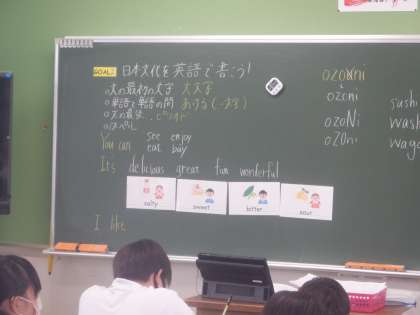 GOAL! 日本文化を英語で書こう!
○文の最初の文字 大文字
○単語と単語の間 あける(一文字)
○文の最後 ピリオド
○スペル
You can see enjoy
eat buy
It's delicious great fun wonderful
salty sweet bitter sour
I like
ozoni
ozoni
ozoNi
oZOni
sushi
wash
waga